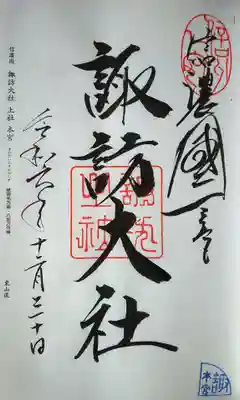 信濃國一之宮
諏訪大社
諏訪大社
令和六年十二月三十日
信濃國 諏訪大社 上社 本宮
東山道
諏
本宮